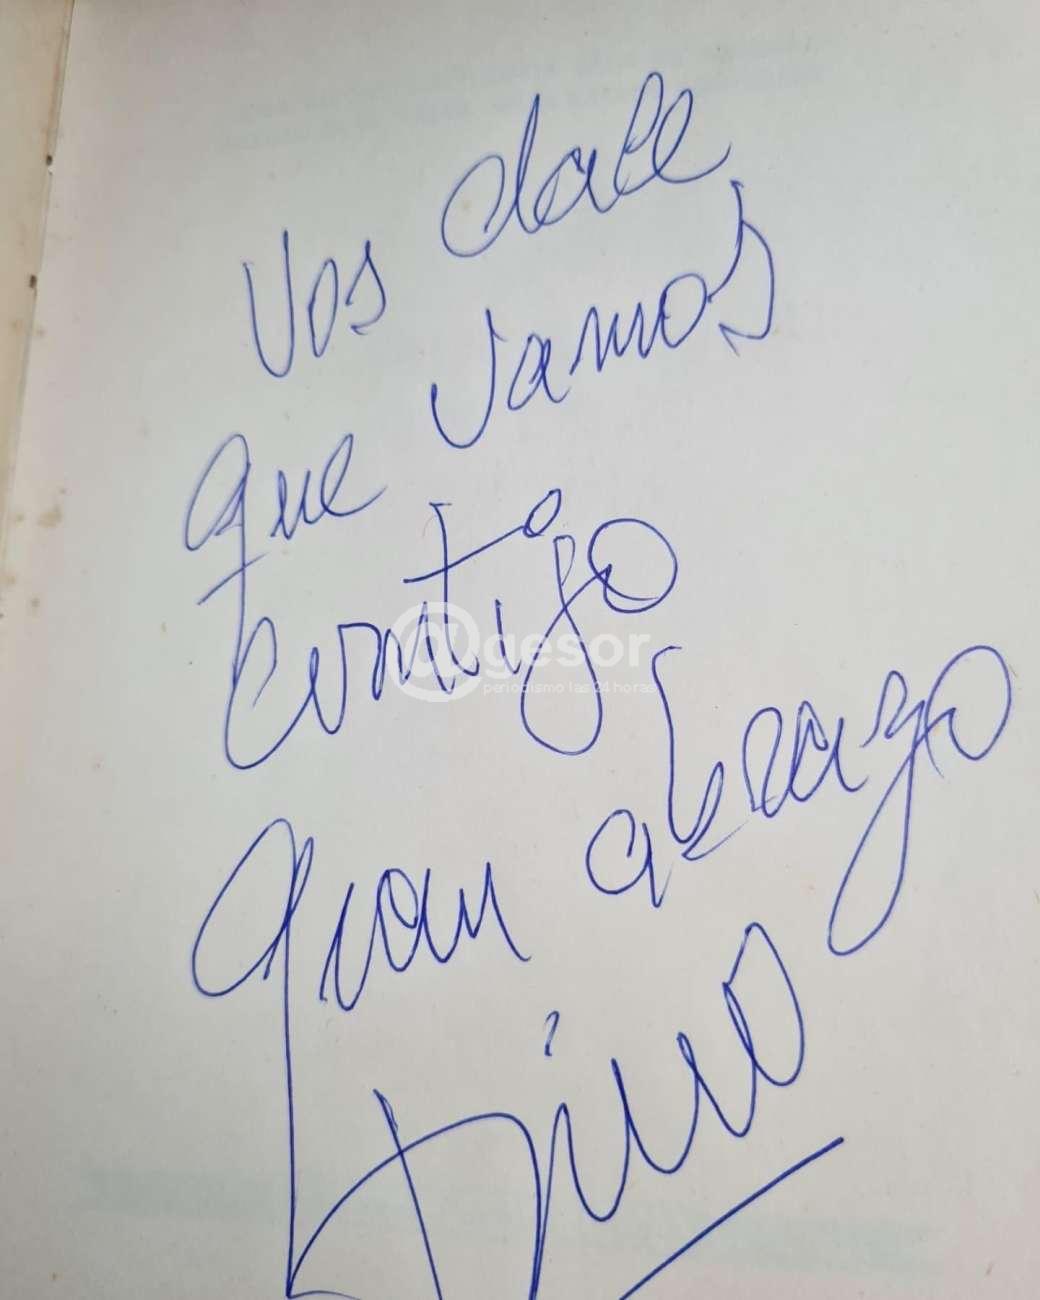 Vos dale
que vamos
contigo
Gran abrazo
Dino
@gesor
periodismo las 24 horas